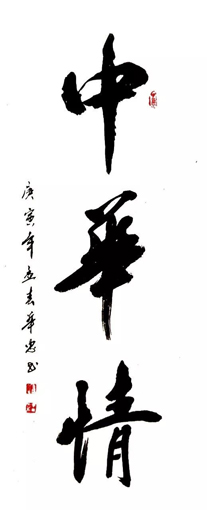 中華情
庚寅年立春華忠书